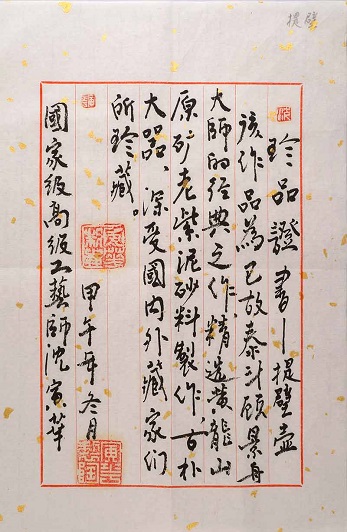 提壁
珍品證書—提壁壺
該作品為已故泰斗顧景舟
大師的經典之作、精選黄龍山
原矿老紫泥砂料製作、古朴
大器、深受國内外藏家们
所珍藏。
甲午年冬月
國家級高级工藝師沈寅華